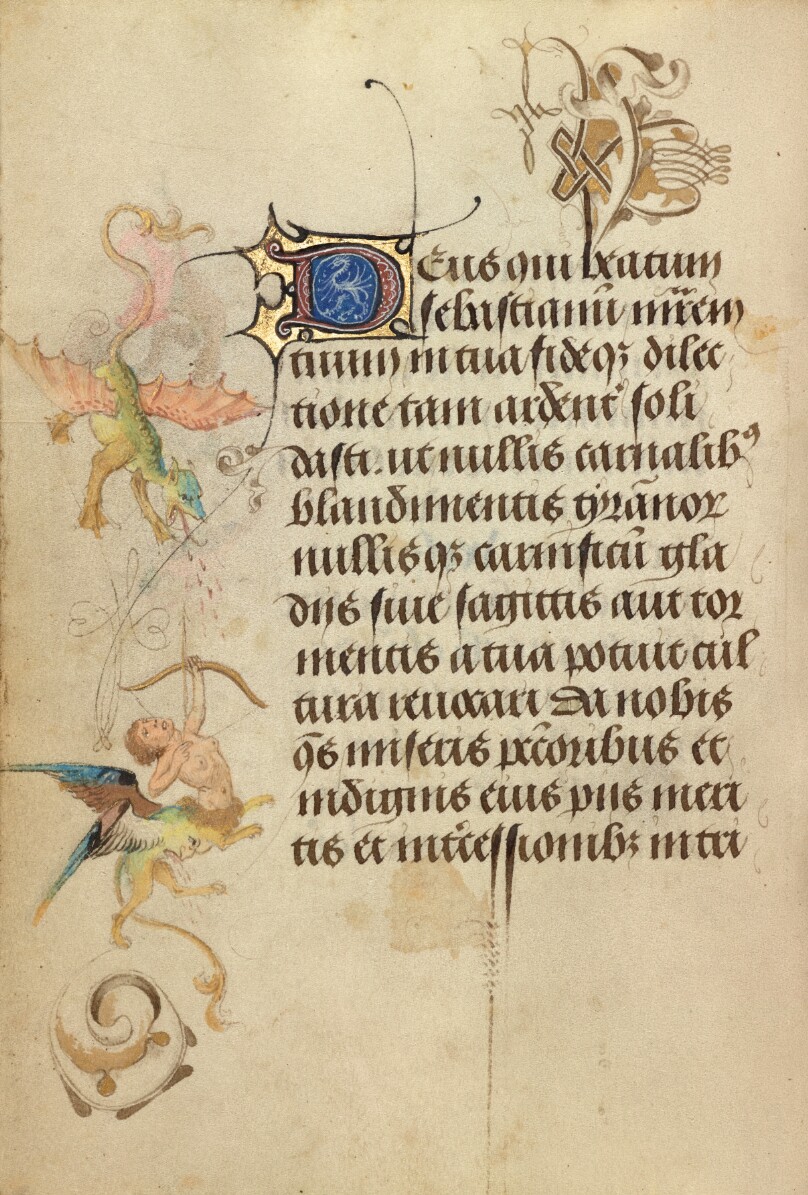 Deus qui beatum
sebastianū mr̄em
tuum in tua fideqꝫ dilec
tione tam ardent͛ soli
dasti. ut nullis carnalibꝰ
blandimentis tyrānoꝝ
nullisqꝫ carnificū gla
diis siue sagittis aut tor
mentis a tua potuit cul
tura reuocari Da nobis
q̄s miseris pc̄coribus et
indignis eius piis meri
tis et int͛cessionibꝫ in tri